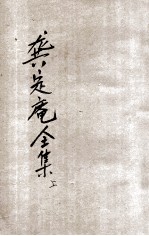 龔定庵全集上